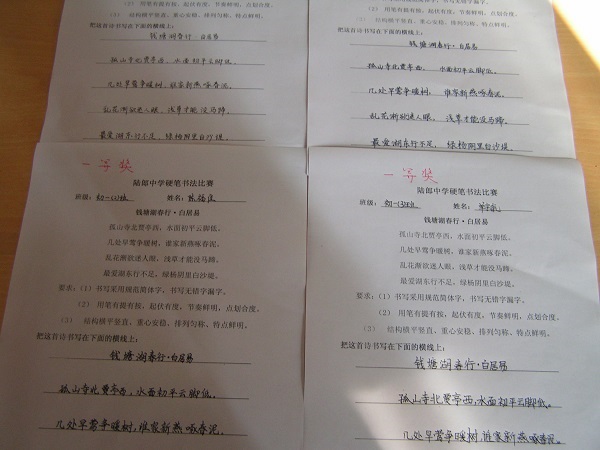 （2） 用笔有提有按，起伏有度，节奏鲜明，点划合度。
（3） 结构横平竖直、重心安稳、排列匀称、特点鲜明。
把这首诗书写在下面的横线上：
钱塘湖春行·白居易
孤山寺北贾亭西，水面初平云脚低。
几处早莺争暖树，谁家新燕啄春泥。
乱花渐欲迷人眼，浅草才能没马蹄。
最爱湖东行不足，绿杨阴里白沙堤。
（2） 用笔有提有按，起伏有度，节奏鲜明，点划合度。
（3） 结构横平竖直、重心安稳、排列匀称、特点鲜明。
把这首诗书写在下面的横线上：
钱塘湖春行·白居易
孤山寺北贾亭西，水面初平云脚低。
几处早莺争暖树，谁家新燕啄春泥。
乱花渐欲迷人眼，浅草才能没马蹄。
最爱湖东行不足，绿杨阴里白沙堤。
一等奖
陆郎中学硬笔书法比赛
班级： 姓名：
钱塘湖春行·白居易
孤山寺北贾亭西，水面初平云脚低。
几处早莺争暖树，谁家新燕啄春泥。
乱花渐欲迷人眼，浅草才能没马蹄。
最爱湖东行不足，绿杨阴里白沙堤。
要求：（1）书写采用规范简体字，书写无错字漏字。
（2） 用笔有提有按，起伏有度，节奏鲜明，点划合度。
（3） 结构横平竖直、重心安稳、排列匀称、特点鲜明。
把这首诗书写在下面的横线上：
钱塘湖春行·白居易
孤山寺北贾亭西，水面初平云脚低。
几处早莺争暖树，谁家新燕啄春泥。
一等奖
陆郎中学硬笔书法比赛
班级：初一(3)班 姓名：
钱塘湖春行·白居易
孤山寺北贾亭西，水面初平云脚低。
几处早莺争暖树，谁家新燕啄春泥。
乱花渐欲迷人眼，浅草才能没马蹄。
最爱湖东行不足，绿杨阴里白沙堤。
要求：（1）书写采用规范简体字，书写无错字漏字。
（2） 用笔有提有按，起伏有度，节奏鲜明，点划合度。
（3） 结构横平竖直、重心安稳、排列匀称、特点鲜明。
把这首诗书写在下面的横线上：
钱塘湖春行·白居易
孤山寺北贾亭西，水面初平云脚低。
几处早莺争暖树，谁家新燕啄春泥。